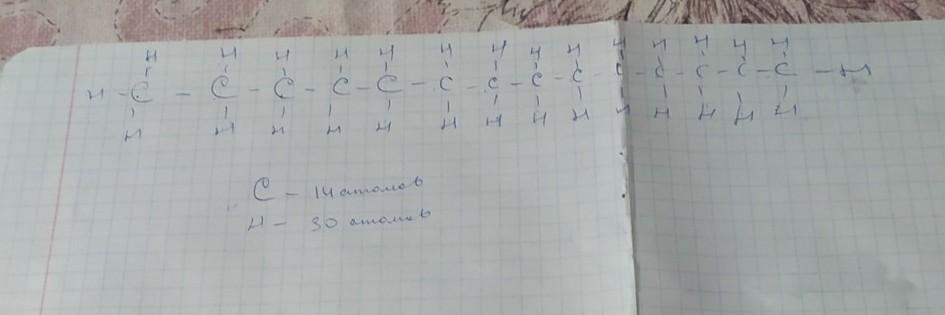 H H H H H H H H H H H H H H
H - C - C - C - C - C - C - C - C - C - C - C - C - C - C - H
H H H H H H H H H H H H H H
C - 14 атомов
H - 30 атомов